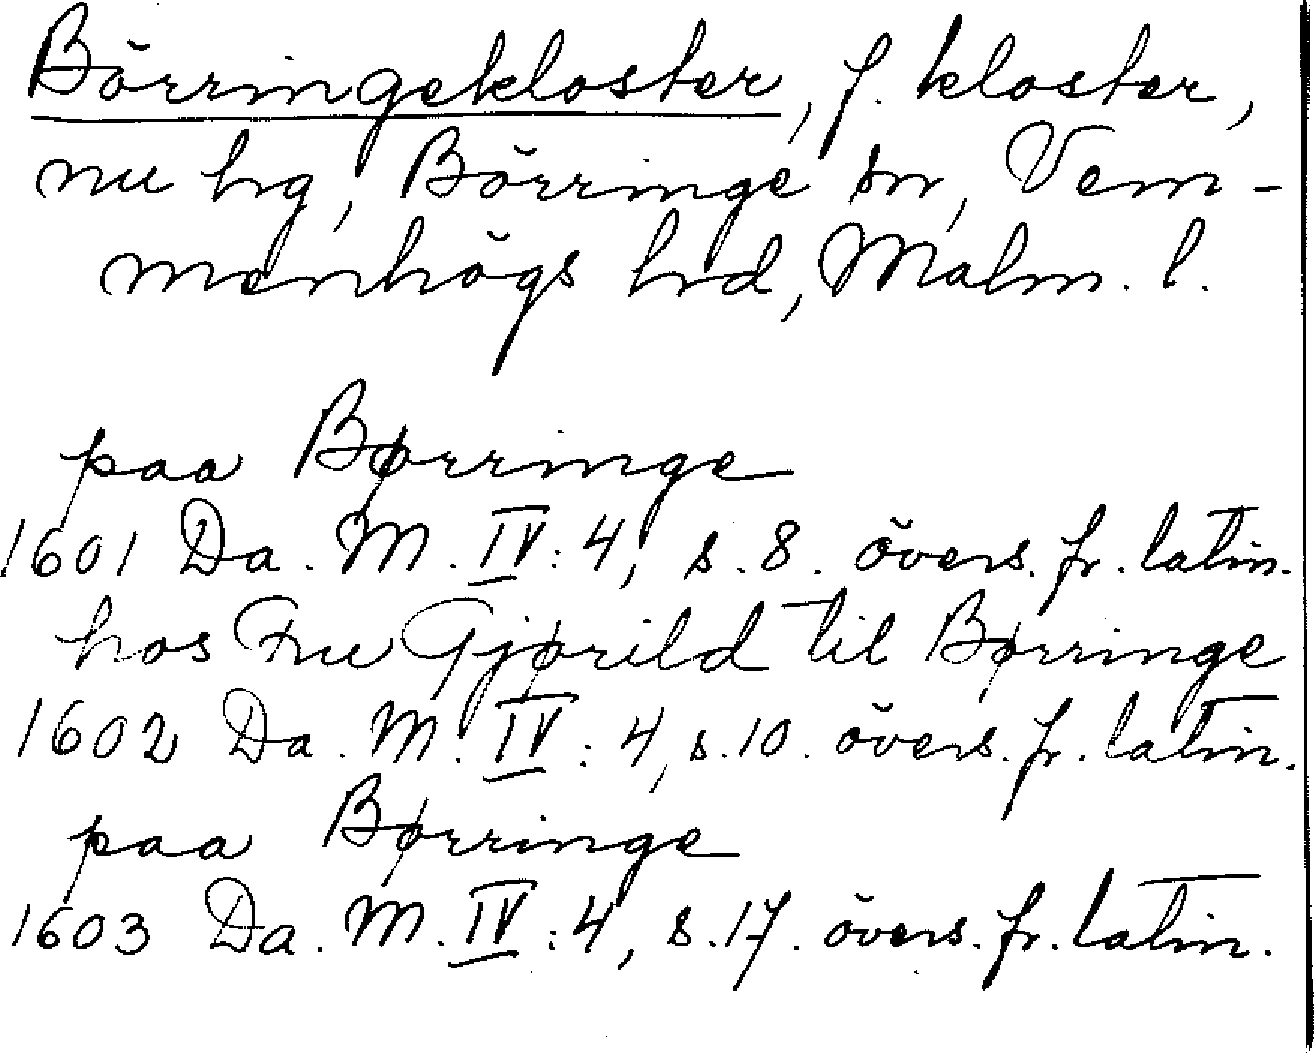 Börringekloster, f. kloster,
nu hg, Börringe sn, Vem-
menhögs hrd, Malm. l.
paa Børringe
1601 Da. M. IV: 4, s. 8. övers. fr. latin.
hos Fru Gjørild til Børringe
1602 Da. M. IV: 4, s. 10. övers. fr. latin.
paa Børringe
1603 Da. M. IV: 4, s. 17. övers. fr. latin.